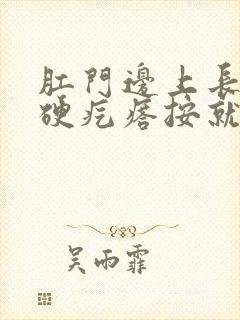 肛門邊上長
硬疙瘩按就
吴雨霏